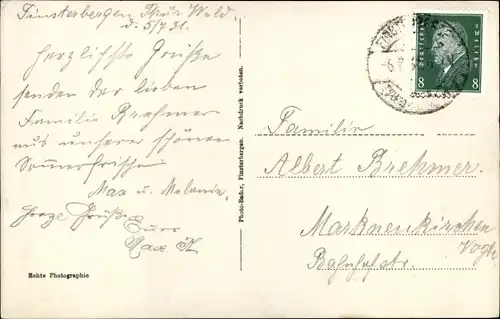 Finsterbergen Thür. Wald.
d. 5/7 31.
Herzlichste Grüße
senden der lieben
Familie Brehmer
aus unserer schönen
Sommerfrische
Max u. Melanie.
Grüße
Euer
Max
Echte Photographie
Photo-Bader, Finsterbergen. Nachdruck verboten.
8 8
Familie
Albert Brehmer.
Markneukirchen
Vogtl.
Bahnhofstr.